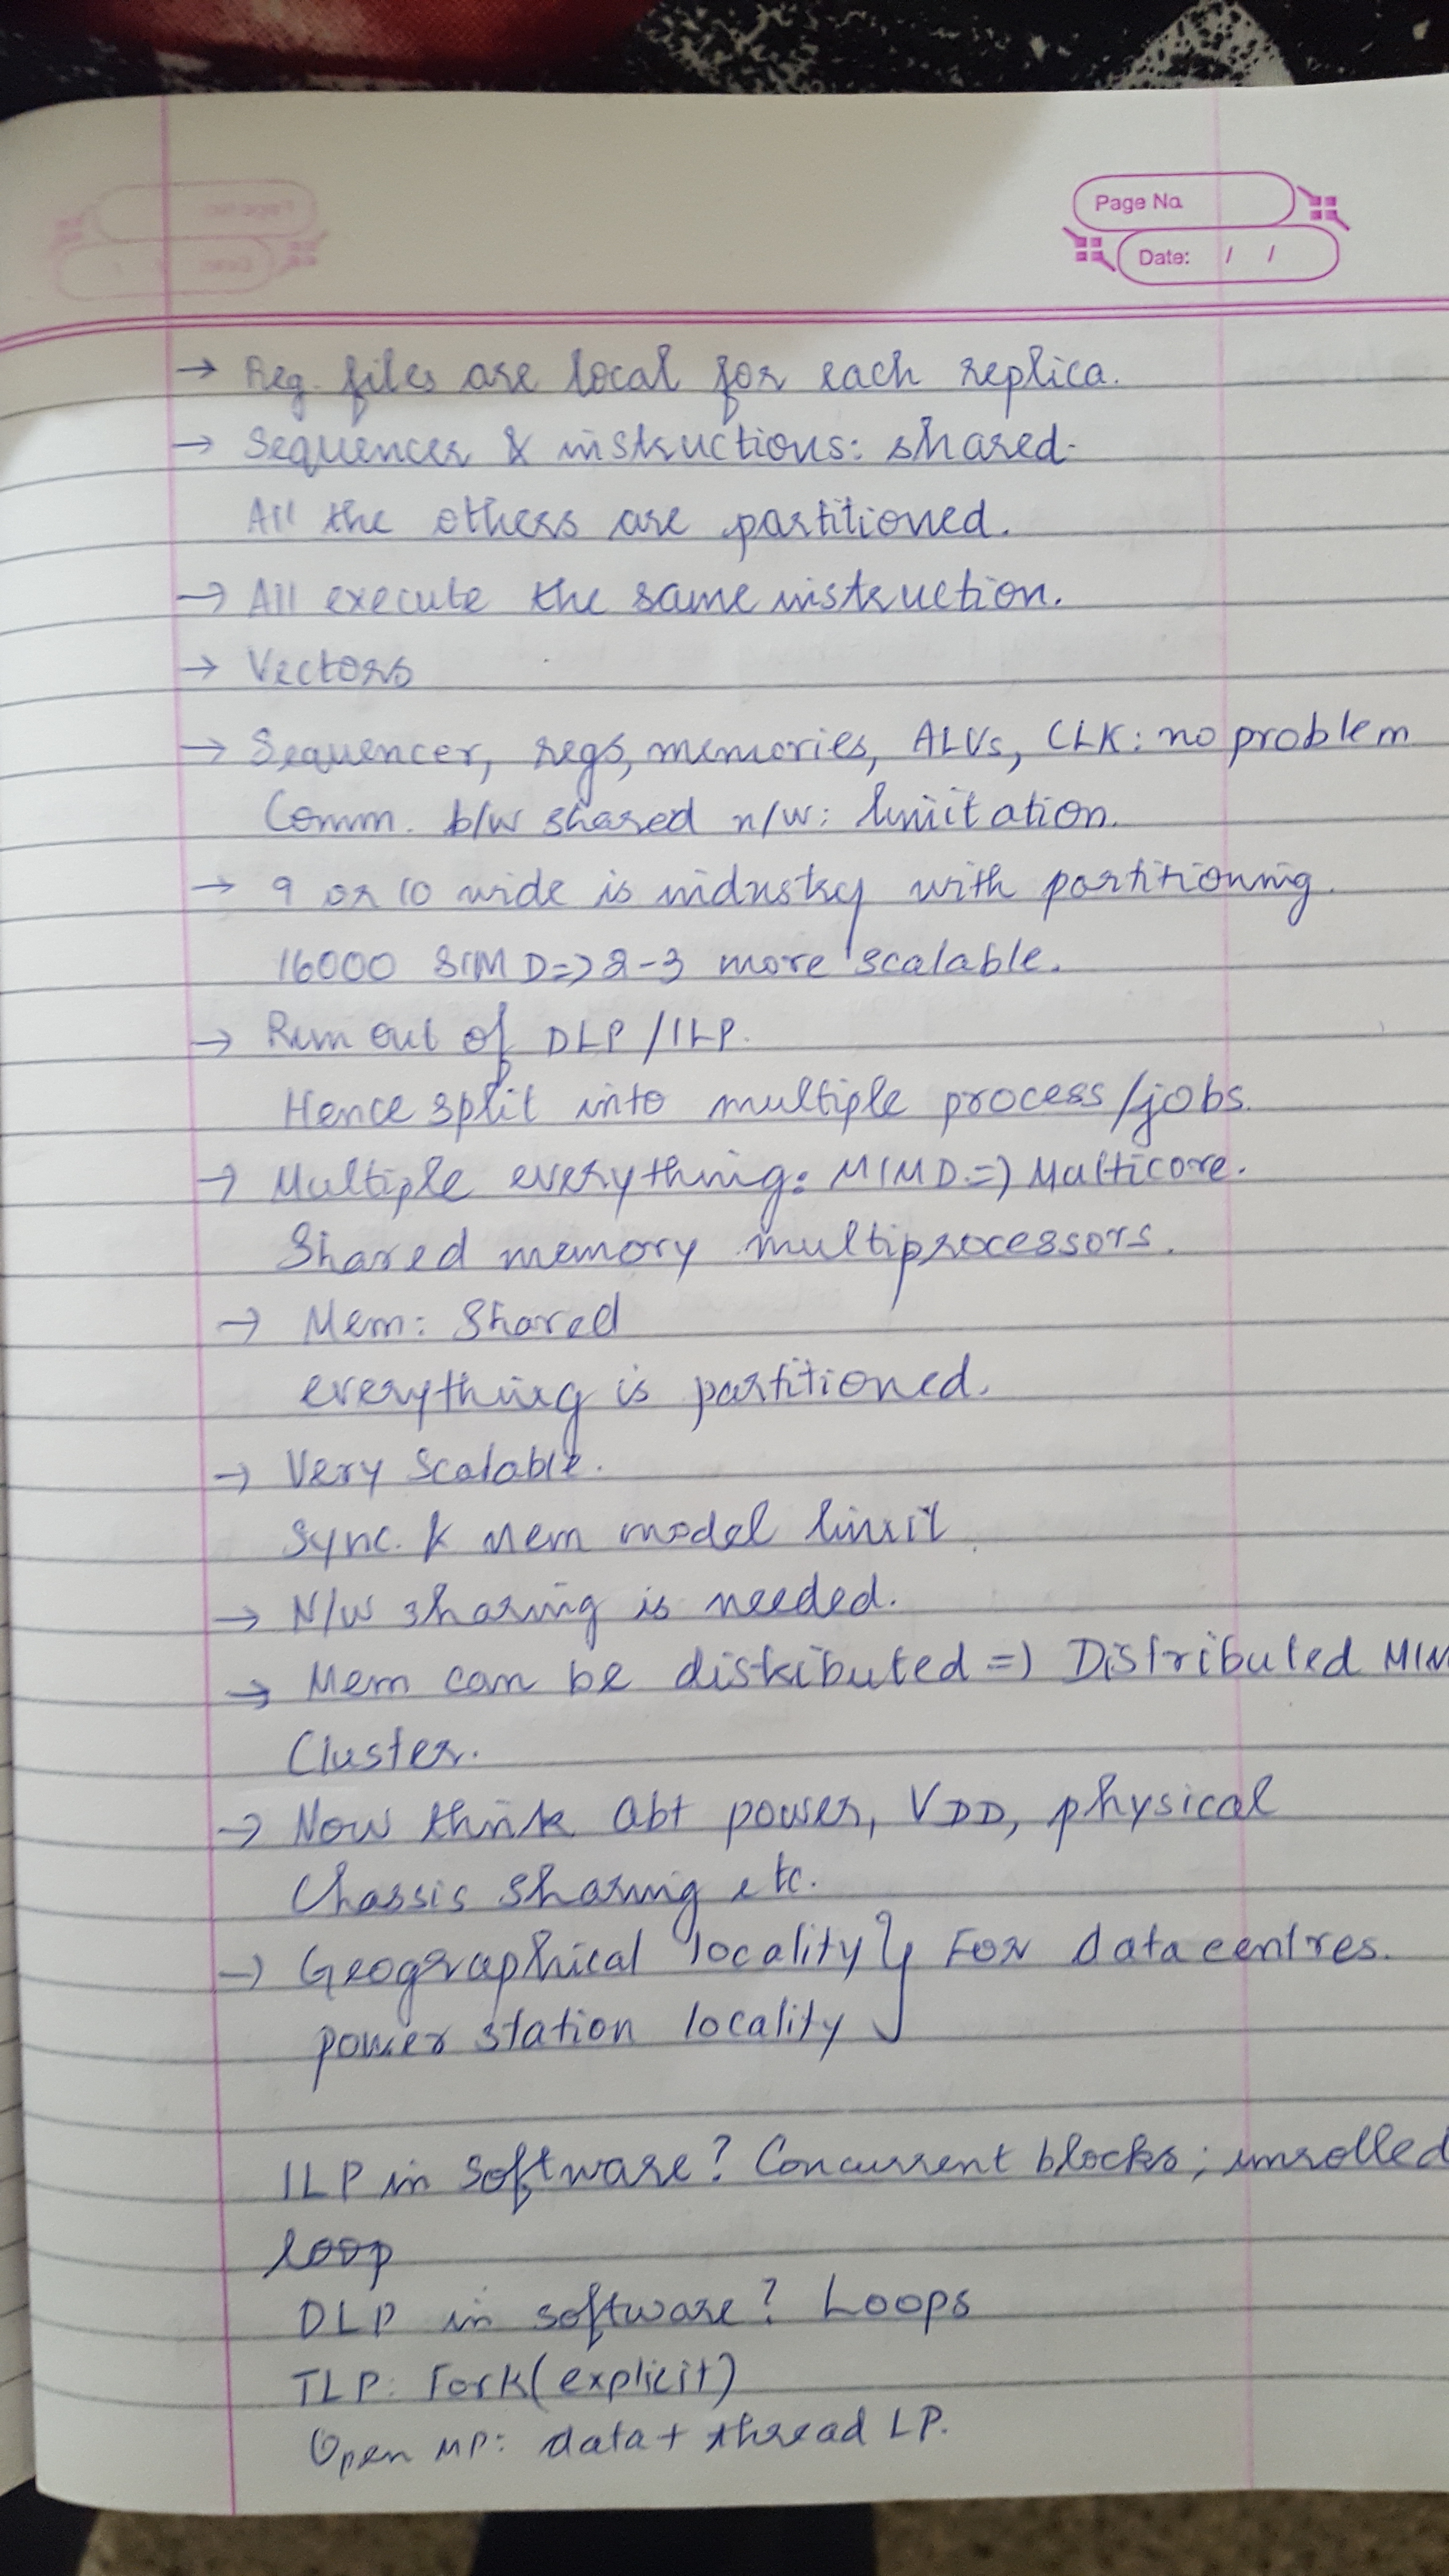 Page No.
Date: / /
→ Reg. files are local for each replica.
→ Sequencer & instructions: shared.
All the others are partitioned.
→ All execute the same instruction.
→ Vectors
→ Sequencer, regs, memories, ALUs, CLK: no problem
Comm. b/w shared n/w: limitation.
→ 9 or 10 wide is industry with partitioning.
16000 SIMD => 2-3 more scalable.
→ Run out of DLP/ILP.
Hence split into multiple process/jobs.
→ Multiple everything: MIMD => Multicore.
Shared memory multiprocessors.
→ Mem: Shared
everything is partitioned.
→ Very Scalable.
Sync. & Mem model limit
→ N/W sharing is needed.
→ Mem can be distributed => Distributed
Cluster.
→ Now think abt power, VDD, physical
Chassis sharing etc.
→ Geographical locality } For datacentres.
power station locality
ILP in software? Concurrent blocks; unrolled
loop
DLP in software? Loops
TLP: Fork(explicit)
Open MP: data + thread LP.